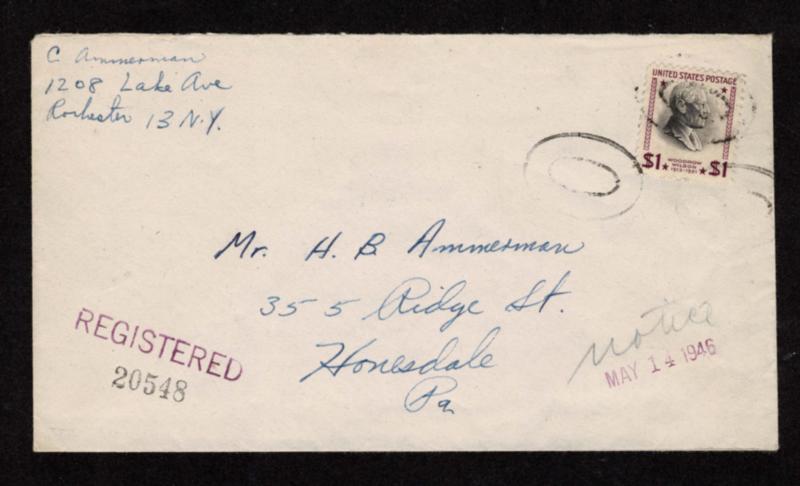 C Ammerman
1208 Lake Ave
Rochester 13 N.Y.
UNITED STATES POSTAGE
$1 WOODROW WILSON 1913-1921 $1
Mr. H. B. Ammerman
355 Ridge St.
Honesdale
Pa
REGISTERED
20548
notice
MAY 14 1946